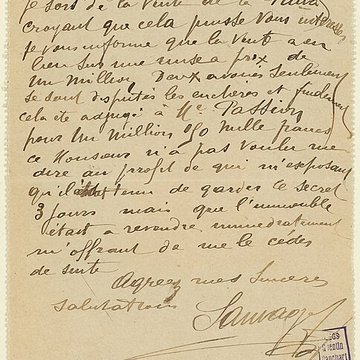 je sors de la vente de la
croyant que cela puisse vous intéresser
je vous informe que la vente a eu
lieu sur une mise a prix de
un Million, Deux avoués seulement
se sont disputés les encheres et finalement
cela été adjugé à Me Passion
pour Un Million 050 mille francs
ce Monsieur n'a pas voulu me
dire au profit de qui m'exposant
qu'il tenu de garder le secret
3 jours mais que l'immeuble
était a revendre immédiatement
m'offrant de me le céder
de suite
Agréez mes Sincères
Salutations
Sauvage